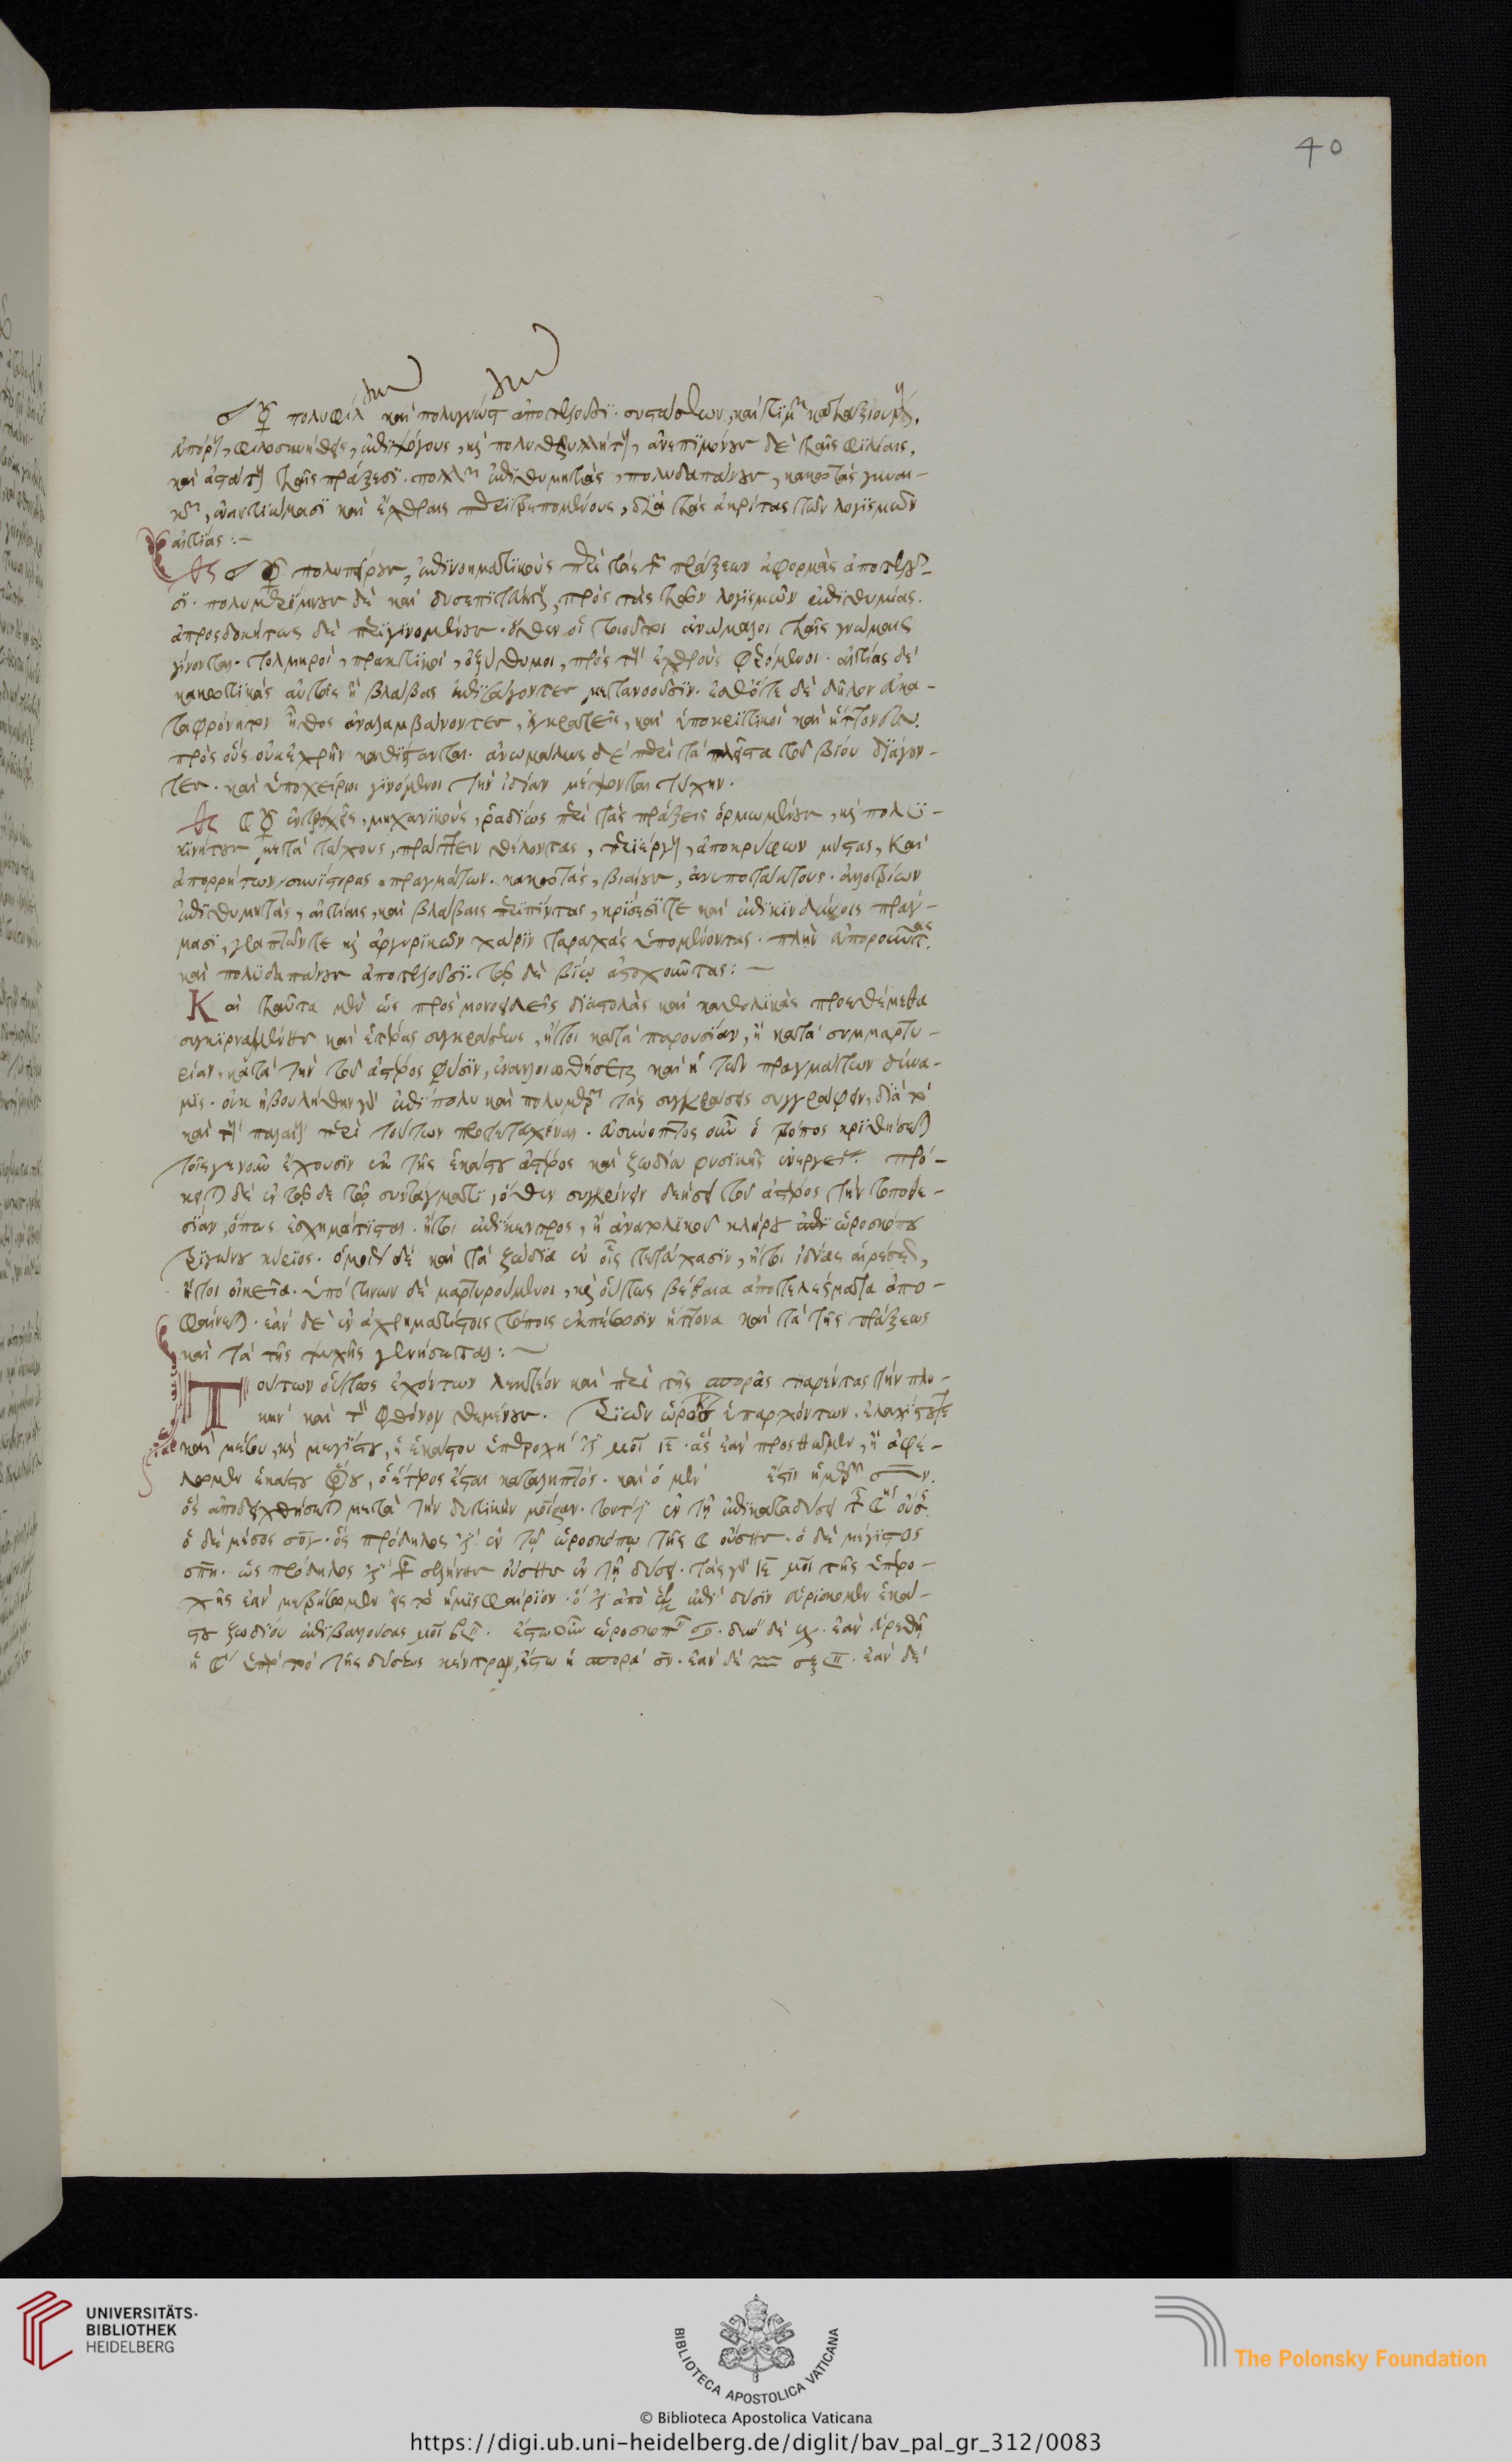 40
πολυφίλ καὶ πολυγνώστ ἀποτελοῦσι. συστάσεων, καὶ τιμ καταξιουμ,
φιλοσυνήθεις, ἐπιψόγους, καὶ πολυθρυλήτ, ἀνεπιμόνους δὲ ταῖς φιλίαις,
καὶ ἀστάτ ταῖς πράξεσι. πολλ ἐπιθυμητὰς, πολυδαπάνους, κακωτὰς γυναι-
κ, ἐναντιώμασι καὶ ἔχθραις περιτρεπομένους, διὰ τὰς ἀκρίτας τῶν λογισμῶν
αἰτίας :-
πολυπείρους, ἐπινοηματικοὺς περὶ τὰς τ πράξεων ἀφορμὰς ἀποτελοῦ-
σι. πολυμερίμνους δὲ καὶ δυσεπιτεύκτ, πρὸς τὰς τῶν λογισμῶν ἐπιθυμίας.
ἀπροσδοκήτως δὲ περιγινομένους. ὅθεν οἱ τοιοῦτοι ἀνώμαλοι ταῖς γνώμαις
γίνονται. τολμηροὶ, πρακτικοὶ, ὀξύθυμοι, πρὸς τ ἐχθροὺς φερόμενοι. αἰτίας δὲ
κακωτικὰς αὐτοῖς ἢ βλάβας ἐπιτάγοντες μετανοοῦσιν. ἐσθότε δὲ δῆλον
ταφρόνητον ἦθος ἀναλαμβάνοντες, ἐγκρατεῖς, καὶ ὑποκριτικοὶ καὶ ἥττονται.
πρὸς οὓς οὐκ ἐχρῆν καθίστανται. ἀνωμάλως δὲ περὶ τὰ πλεῖστα τοῦ βίου διάγον-
τες. καὶ ὑποχείριοι γινόμενοι τὴν ἰδίαν μέμφονται τύχην.
ἐντρεχεῖς, μηχανικοὺς, ῥαδίως περὶ τὰς πράξεις ὁρμωμένους, καὶ πολυ-
κινήτους μετὰ τάχους, πράττειν θέλοντας, περιέργ, ἀποκρύφων μύστας, καὶ
ἀπορρήτων συνίστορας πραγμάτων. κακωτὰς, βιαίους, ἀνυποτάκτους. ἀλλοτρίων
ἐπιθυμητὰς, αἰτίαις, καὶ βλάβαις περιπίπτας, κρίσεσίτε καὶ ἐπικινδύνοις πράγ-
μασι, γραπτῶντε καὶ ἀργυρικῶν χάριν ταραχὰς ὑπομένοντας. πλὴν εὐποροῦντας
καὶ πολυδαπάνους ἀποτελοῦσι. τῷ δὲ βίῳ ἀστοχοῦντας :-
Καὶ ταῦτα μὲν ὡς πρὸς μονομερεῖς διαστολὰς καὶ καθολικὰς προεθέμεθα
συγκιρναμένης καὶ ἑτέρας συγκράσεως, ἤτοι κατὰ παρουσίαν, ἢ κατὰ συμμαρτυ-
ρίαν, κατὰ τὴν τοῦ ἀστέρος φύσιν, ἐναλλοιωθήσεται καὶ ἡ τῶν πραγμάτων δύνα-
μις. οὐκ ἠβουλήθην γὰρ ἐπὶ πολὺ καὶ πολυμερ τὰς συγκράσεις συγγράφειν, διὰ τὸ
καὶ τ παλαι περὶ τούτων προτεταχέναι. εὐσύνοπτος οὖν ὁ τρόπος κριθήσεται
τοῖς γε νοῦν ἔχουσιν ἐκ τῆς ἑκάστου ἀστέρος καὶ ζωδίου φυσικῆς ἐνεργείας. πρό-
κειται δὲ ἐν τῷ δε τῷ συντάγματι, ὅθεν συγκρίνειν δεήσει τοῦ ἀστέρος τὴν τοποθε-
σίαν, ὅπως ἐσχημάτισται. ἤτοι ἐπίκεντρος, ἢ ἀναφορικοῦ κλήρου ἢ ὡροσκόπου
τριγώνου κύριος. ὁμοίως δὲ καὶ τὰ ζώδια ἐν οἷς τετάχασιν, ἤτοι ἰδίας αἱρέσεως,
ἤτοι οἰκεῖα. ὑπὸ τίνων δὲ μαρτυρούμενοι, καὶ οὕτως βέβαια ἀποτελέσματα ἀπο-
φαίνεται. ἐὰν δὲ ἐν ἀχρηματίστοις τόποις ἐκπέσωσιν ἥττονα καὶ τὰ τῆς πράξεως
καὶ τὰ τῆς ψυχῆς γενήσεται :-
Τούτων οὕτως ἐχόντων λεκτέον καὶ περὶ τῆς σπορᾶς παρέντας τὴν πλο-
κὴν καὶ τ φθόνον θεμένους. τριῶν ὅρων ὑπαρχόντων, ἐλαχίστουτε
καὶ μέσου, καὶ μεγίστου, ἡ ἑκάστου ὑπεροχὴ μοῖ ιε. ἃς ἐὰν προσθῶμεν, ἢ ἀφέ-
λωμεν ἑκάστου ὅρου, ὁ ἕτερος ἔσται καταληπτός. καὶ ὁ μὲν ἐστιν ἡμερ σνη.
ὃς ἀποδειχθήσεται μετὰ τὴν δυτικὴν μοῖραν. τουτέστιν ἐν τῇ ἐπικαταδύσει τ οὔσης
ὁ δὲ μέσος σογ. ὃς πρόδηλος ἐν τῷ ὡροσκόπῳ τῆς οὔσης. ὁ δὲ μέγιστος
σπη. ὡς πρόδηλος σελήνης οὔσης ἐν τῇ δύσει. τὰς γὰρ ιε μοῖ τῆς ὑπερο-
χῆς ἐὰν μερίσωμεν εἰς τὸ ἡμισφαίριον. ἀπὸ ἐπὶ δύσιν εὑρίσκομεν ἑκά-
στου ζωδίου ἐπιβαλούσας μοῖ. ἔστω οὖν ὡροσκοπ. δὲ. ἐὰν εὑρεθῇ
ἡ τὸ τῆς δύσεως κέντρον, ἔστω ἡ σπορὰ σνη. ἐὰν δὲ. ἐὰν δὲ
UNIVERSITÄTS-
BIBLIOTHEK
HEIDELBERG
BIBLIOTECA APOSTOLICA VATICANA
The Polonsky Foundation
© Biblioteca Apostolica Vaticana
https://digi.ub.uni-heidelberg.de/diglit/bav_pal_gr_312/0083